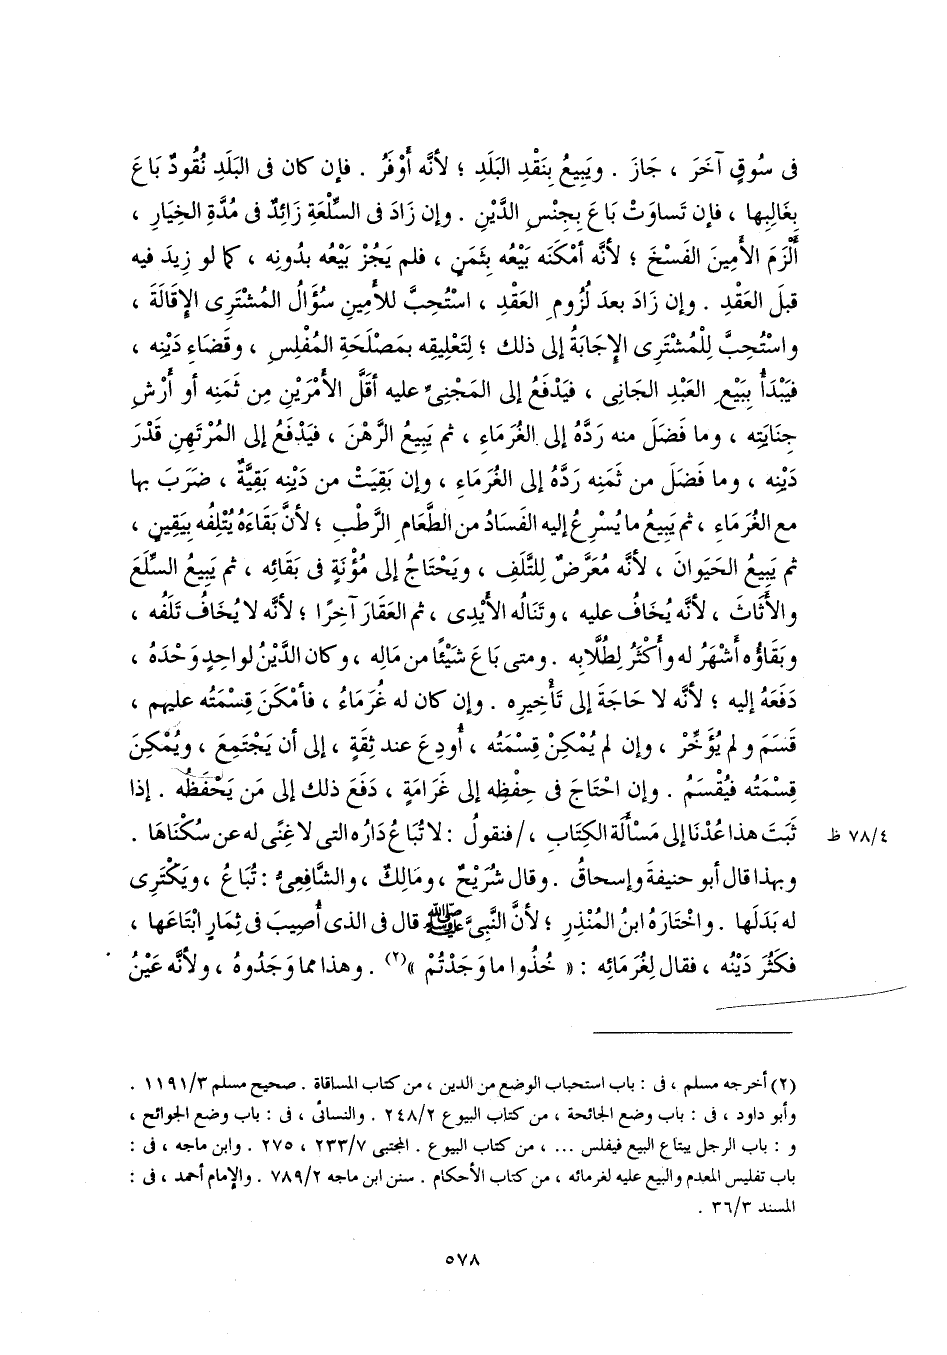 فى سُوقٍ آخَرَ ، جَازَ . ويَبِيعُ بِنَقْدِ البَلَدِ ؛ لأنَّه أَوْفَرُ . فإن كان فى البَلَدِ نُقُودٌ بَاعَ
بِغَالِبِها ، فإن تَساوَتْ بَاعَ بِجِنْسِ الدَّيْنِ . وإن زَادَ فى السِّلْعَةِ زَائِدٌ فى مُدَّةِ الخِيَارِ ،
أُلْزِمَ الأَمِينَ الفَسْخَ ؛ لأنَّه أمْكَنَه بَيْعُه بِثَمَنٍ ، فلم يَجُزْ بَيْعُه بدُونِه ، كما لو زِيدَ فيه
قبلَ العَقْدِ . وإن زَادَ بعدَ لُزُومِ العَقْدِ ، اسْتُحِبَّ للأَمِينِ سُؤَالُ المُشْتَرِى الإِقَالَةَ ،
واسْتُحِبَّ لِلْمُشْتَرِى الإِجَابَةُ إلى ذلك ؛ لِتَعْلِيقِه بمَصْلَحَةِ المُفْلِسِ ، وقَضَاءِ دَيْنِه ،
فيَبْدَأُ بِبَيْعِ العَبْدِ الجَانِى ، فيَدْفَعُ إلى المَجْنِىِّ عليه أقَلَّ الأَمْرَيْنِ مِن ثَمَنِه أو أَرْشِ
جِنَايَتِه ، وما فَضَلَ منه رَدَّهُ إلى الغُرَمَاءِ ، ثم يَبِيعُ الرَّهْنَ ، فيَدْفَعُ إلى المُرْتَهِنِ قَدْرَ
دَيْنِه ، وما فَضَلَ من ثَمَنِه رَدَّهُ إلى الغُرَمَاءِ ، وإن بَقِيَتْ من دَيْنِه بَقِيَّةٌ ، ضَرَبَ بها
مع الغُرَمَاءِ ، ثم يَبِيعُ ما يُسْرِعُ إليه الفَسَادُ من الطَّعَامِ الرَّطْبِ ؛ لأنَّ بَقَاءَهُ يُتْلِفُه بِيَقِينٍ ،
ثم يَبِيعُ الحَيَوانَ ، لأنَّه مُعَرَّضٌ لِلتَّلَفِ ، ويَحْتَاجُ إلى مُؤْنَةٍ فى بَقَائِه ، ثم يَبِيعُ السِّلَعَ
والأَثاثَ ، لأنَّه يُخَافُ عليه ، وتَنَالُه الأَيْدِى ، ثم العَقَارَ آخِرًا ؛ لأنَّه لا يُخَافُ تَلَفُه ،
وبَقَاؤُه أَشْهَرُ له وأَكْثَرُ لِطُلَّابِه . ومتى بَاعَ شَيْئًا من مَالِه ، وكان الدَّيْنُ لواحِدٍ وَحْدَهُ ،
دَفَعَهُ إليه ؛ لأنَّه لا حَاجَةَ إلى تَأْخِيرِه . وإن كان له غُرَمَاءُ ، فأمْكَنَ قِسْمَتُه عليهم ،
قَسَمَ ولم يُؤَخِّرْ ، وإن لم يُمْكِنْ قِسْمَتُه ، أُودِعَ عند ثِقَةٍ ، إلى أن يَجْتَمِعَ ، ويُمْكِنَ
قِسْمَتُه فيُقْسَمُ . وإن احْتَاجَ فى حِفْظِه إلى غَرَامَةٍ ، دَفَعَ ذلك إلى مَن يَحْفَظُه . إذا
ثَبَتَ هذا عُدْنَا إلى مَسْأَلَةِ الكِتَابِ ، / فنقولُ : لا تُبَاعُ دَارُه التى لا غِنًى له عن سُكْنَاهَا . ٧٨/٤ ظ
وبهذا قال أبو حنيفةَ وإسحاقُ . وقال شُرَيْحٌ ، ومَالِكٌ ، والشَّافِعِىُّ : تُبَاعُ ، ويَكْتَرِى
له بَدَلَها . واخْتَارَهُ ابنُ المُنْذِرِ ؛ لأنَّ النَّبِىَّ ﷺ قال فى الذى أُصِيبَ فى ثِمَارٍ ابْتَاعَها ،
فكَثُرَ دَيْنُه ، فقال لِغُرَمَائِه : « خُذُوا ما وَجَدْتُمْ »(٢) . وهذا مما وَجَدُوهُ ، ولأنَّه عَيْنُ
(٢) أخرجه مسلم ، فى : باب استحباب الوضع من الدين ، من كتاب المساقاة . صحيح مسلم ١١٩١/٣ .
وأبو داود ، فى : باب وضع الجائحة ، من كتاب البيوع ٢٤٨/٢ . والنسائى ، فى : باب وضع الجوائح ،
و : باب الرجل يبتاع البيع فيفلس ... ، من كتاب البيوع . المجتبى ٢٣٣/٧ ، ٢٧٥ . وابن ماجه ، فى :
باب تفليس المعدم والبيع عليه لغرمائه ، من كتاب الأحكام . سنن ابن ماجه ٧٨٩/٢ . والإمام أحمد ، فى :
المسند ٣٦/٣ .
٥٧٨